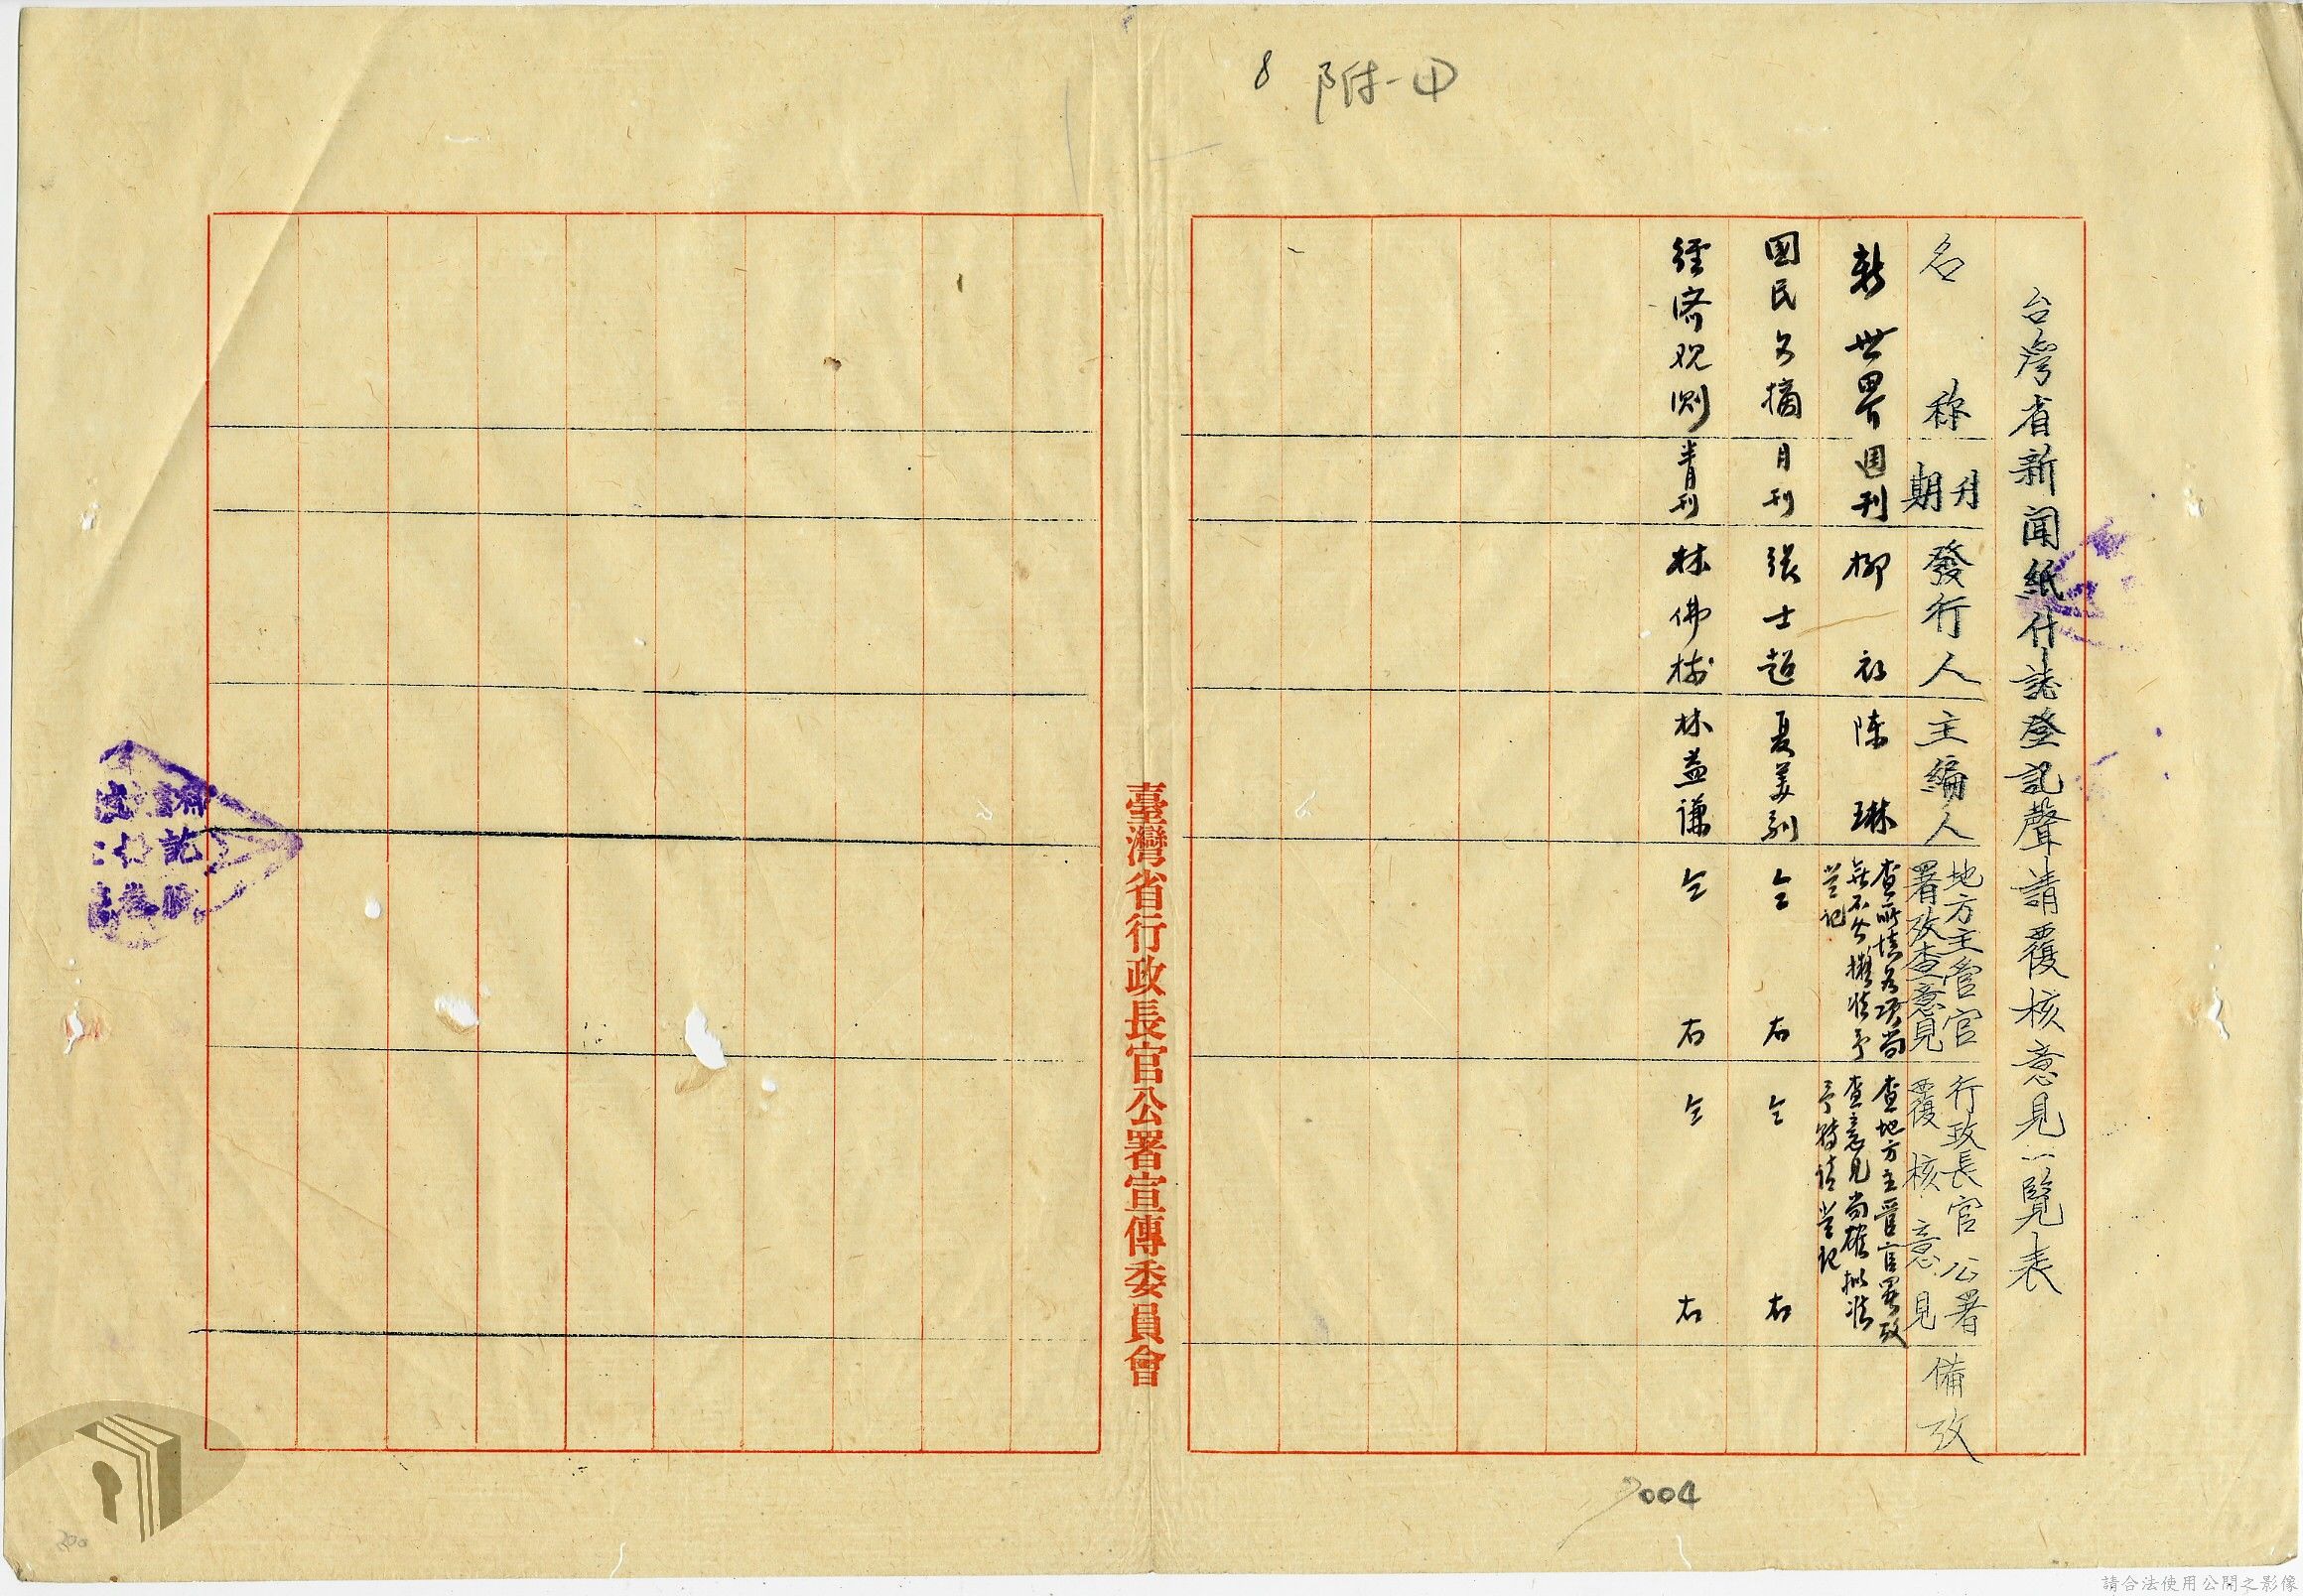 8 附-甲
台灣省新闻紙什誌登記聲請覆核意見一覽表
名稱
刊期
發行人
主編人
地方主管官署攷查意見
行政長官公署覆核意見
備攷
新世界
週刊
柳
陳琳
查所填各項尚
無不合擬准予
登記
查地方主管官署攷
查意見尚確擬准
予轉請登記
國民文摘
月刊
張士超
夏美馴
仝右
仝右
經济观测
半月刊
林佛樹
林益谦
仝右
仝右
臺灣省行政長官公署宣傳委員會
004
請合法使用公開之影像